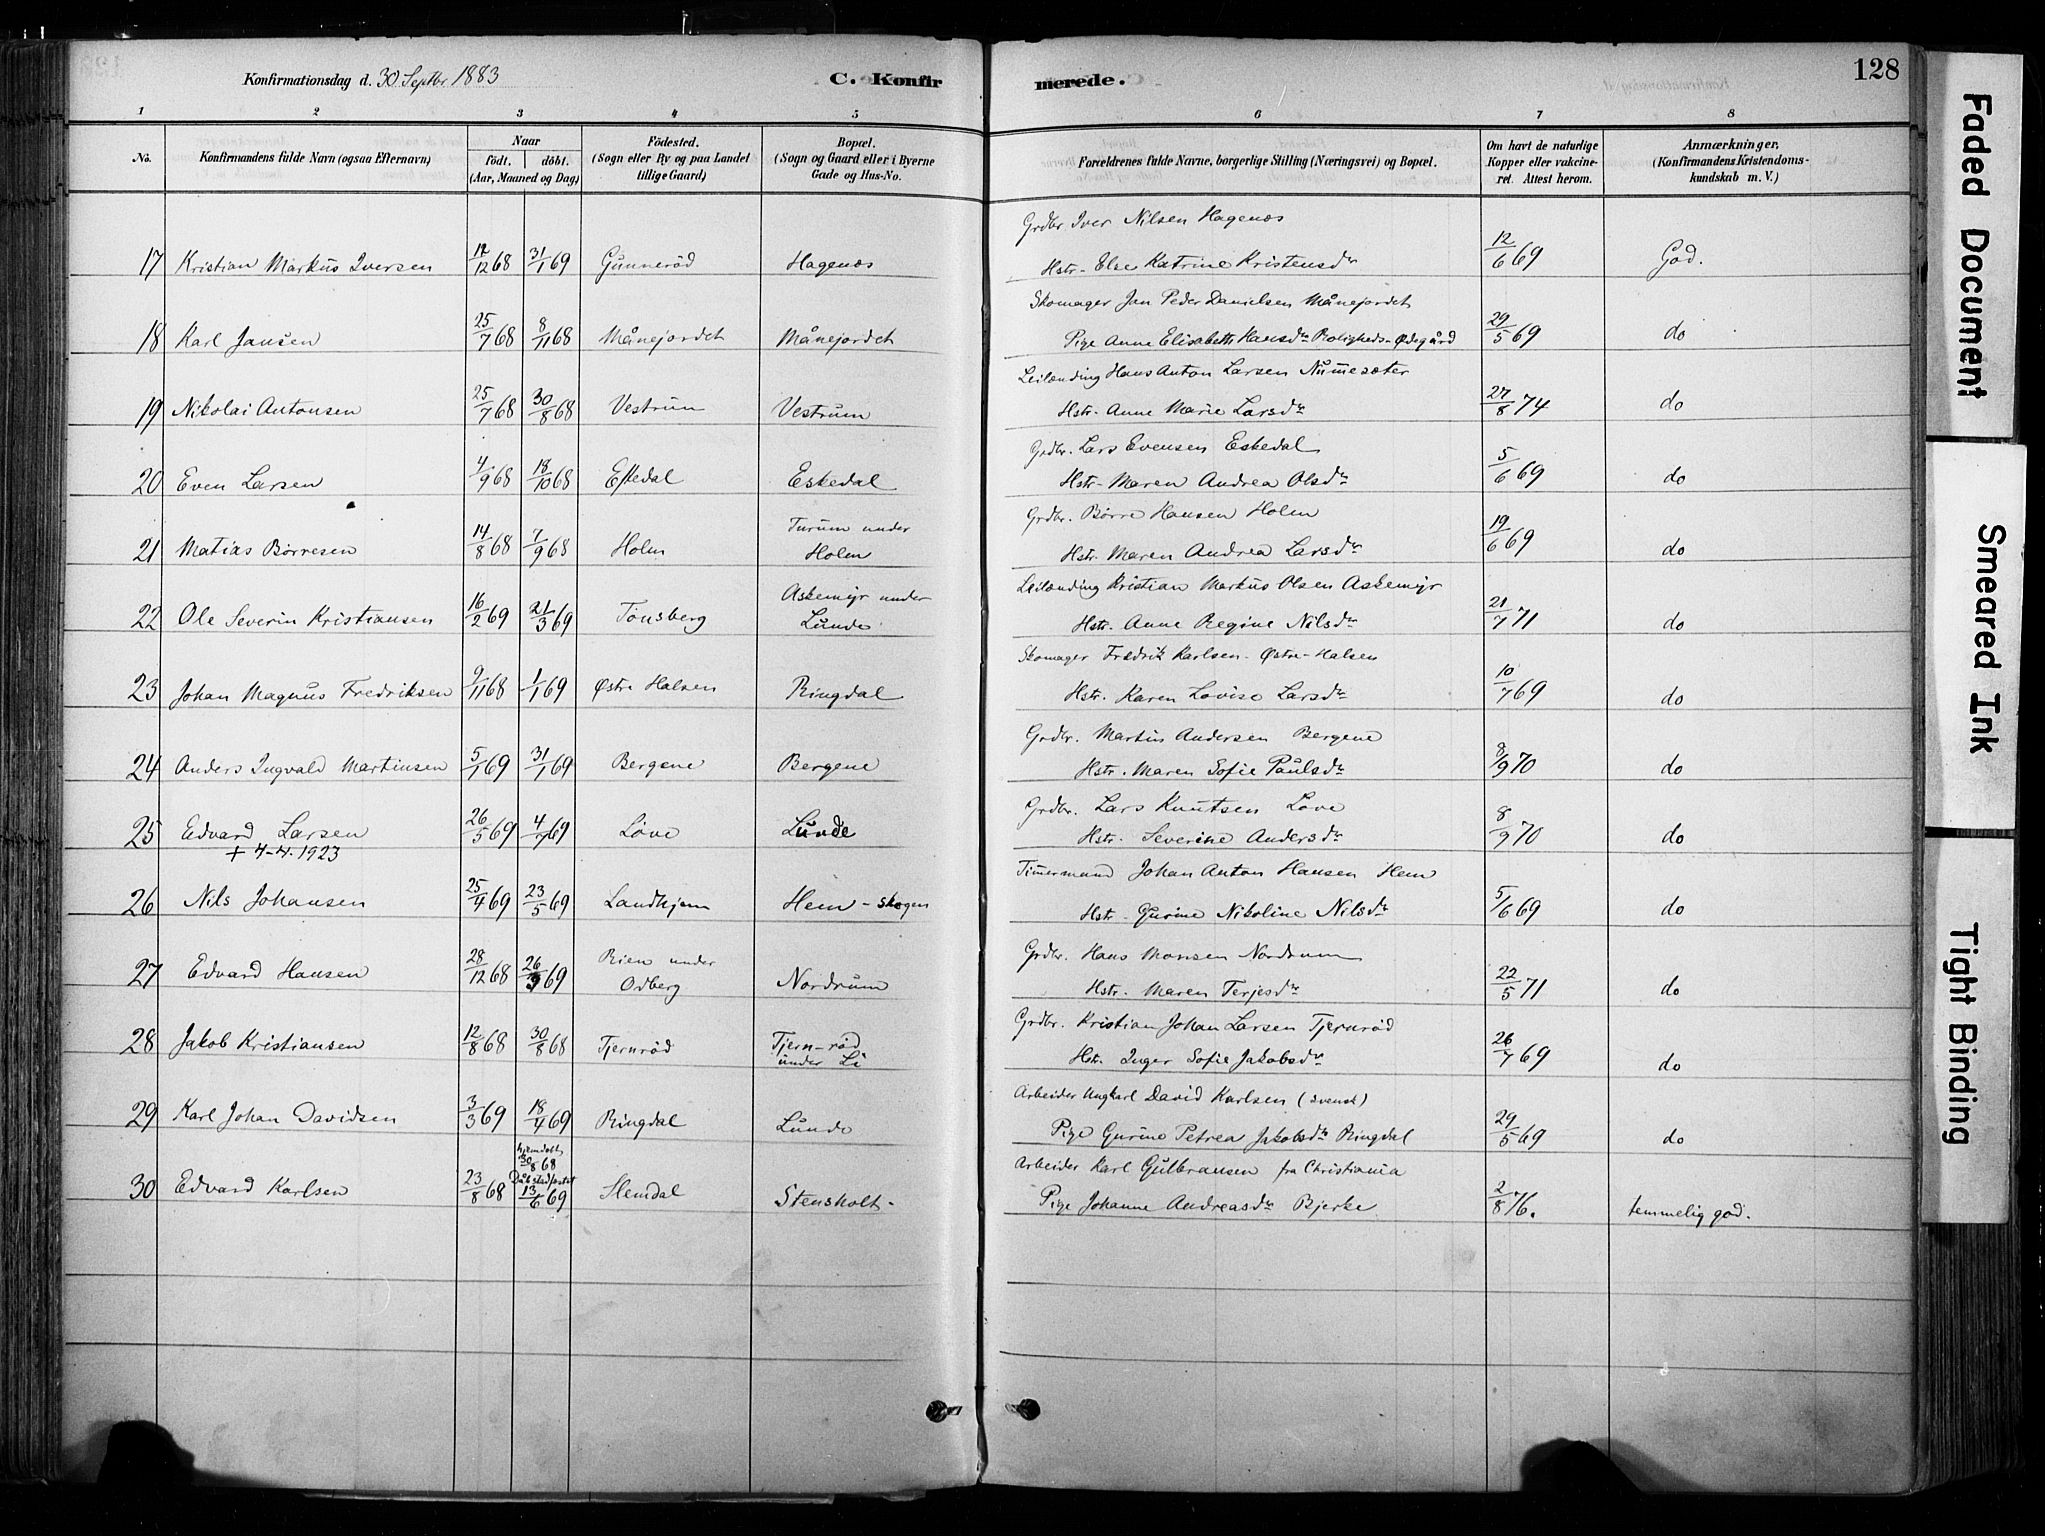 Konfirmationsdag d. 30 Septbr 1883
C. Konfir
merede.
128
1 2 3 4 5 6 7 8
No.
Konfirmandens fulde Navn (ogsaa Efternavn)
Naar
født. døbt.
(Aar, Maaned og Dag)
Födested.
(Sogn eller By og paa Landet
tillige Gaard)
Bopæl.
(Sogn og Gaard eller i Byerne
Gade og Hus-No.
Forældrenes fulde Navne, borgerlige Stilling (Næringsvei) og Bopæl.
Om havt de naturlige
Kopper eller vakcine-
ret. Attest herom.
Anmærkninger.
(Konfirmandens Kristendoms-
kundskab m. V.)
Grdbr. Iver Nilsen Hagenæs
17 Kristian Markus Iversen 12/12 68 31/1 69 Gunnerød Hagenæs Hstr. Else Katrine Kristensdr 12/6 69 God.
Skomager Jan Peder Danielsen Månejordet
18 Karl Jansen 25/7 68 8/11 68 Månejordet Månejordet Pige Anne Elisabeth Hansdr Roligheds-Ødegård 29/5 69 do
Leilænding Hans Anton Larsen Nummesæter
19 Nikolai Antonsen 25/7 68 30/8 68 Vestrum Vestrum Hstr. Anne Marie Larsdr 27/8 74 do
Grdbr. Lars Evensen Eskedal
20 Even Larsen 4/9 68 18/10 68 Eskedal Eskedal Hstr. Maren Andrea Olsdr 5/6 69 do
Turum under
Grdbr. Børre Hansen Holm
21 Matias Børresen 14/8 68 7/9 68 Holm Holm Hstr. Maren Andrea Larsdr 19/6 69 do
Askemyr under
Leilænding Kristian Markus Olsen Askemyr
22 Ole Severin Kristiansen 16/2 69 21/3 69 Tønsberg Lunde Hstr. Anne Regine Nilsdr 21/7 71 do
Skomager Fredrik Karlsen Østre-Halsen
23 Johan Magnus Fredriksen 9/11 68 1/1 69 Østre Halsen Ringdal Hstr. Karen Lovise Larsdr 10/7 69 do
Grdbr. Martin Andersen Bergene
24 Anders Ingvald Martinsen 5/1 69 31/1 69 Bergene Bergene Hstr. Maren Sofie Paulsdr 8/9 70 do
Grdbr. Lars Knutsen Løve
25 Edvard Larsen 26/5 69 4/7 69 Løve Lunde Hstr. Severine Andersdr 8/9 70 do
+ 7-4. 1923
Timermand Johan Anton Hansen Hem
26 Nils Johansen 25/4 69 23/5 69 Sandhjem Hem-skogen Hstr. Gurine Nikoline Nilsdr 5/6 69 do
Rien under
Grdbr. Hans Monsen Nordrum
27 Edvard Hansen 28/12 68 26/3 69 Odberg Nordrum Hstr. Maren Terjesdr 22/5 71 do
Grdbr. Kristian Johan Larsen Tjernrød
28 Jakob Kristiansen 12/8 68 30/8 68 Tjernrød Tjern-rød Hstr. Inger Sofie Jakobsdr 26/7 69 do
under Li
Arbeider Ungkarl David Karlsen (svensk)
29 Karl Johan Davidsen 3/3 69 18/4 69 Ringdal Lunde Pige Gurine Petrea Jakobsdr Ringdal 29/5 69 do
hjemdøbt
30/8 68
Arbeider Karl Gulbransen fra Christiania
30 Edvard Karlsen 23/8 68 13/6 69 Hemdal Stensholt. Pige Johanne Andreasdr Bjerke 2/8 76. temmelig god.
Faded Document
Smeared Ink
Tight Binding